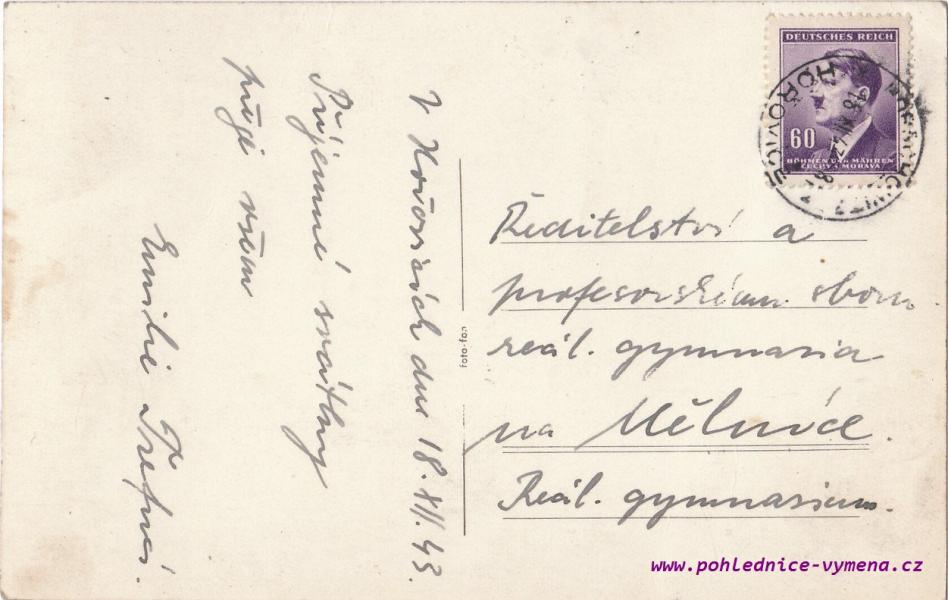 V Hořovicích dne 18.XII.43.
Příjemné svátky
přeje všem
Emilie
DEUTSCHES REICH
60
BÖHMEN UND MÄHREN
ČECHY A MORAVA
HOŘOVICE
foto-fon
Ředitelství a
profesorskému sboru
reál. gymnasia
na Mělníce.
Reál. gymnasium.
www.pohlednice-vymena.cz